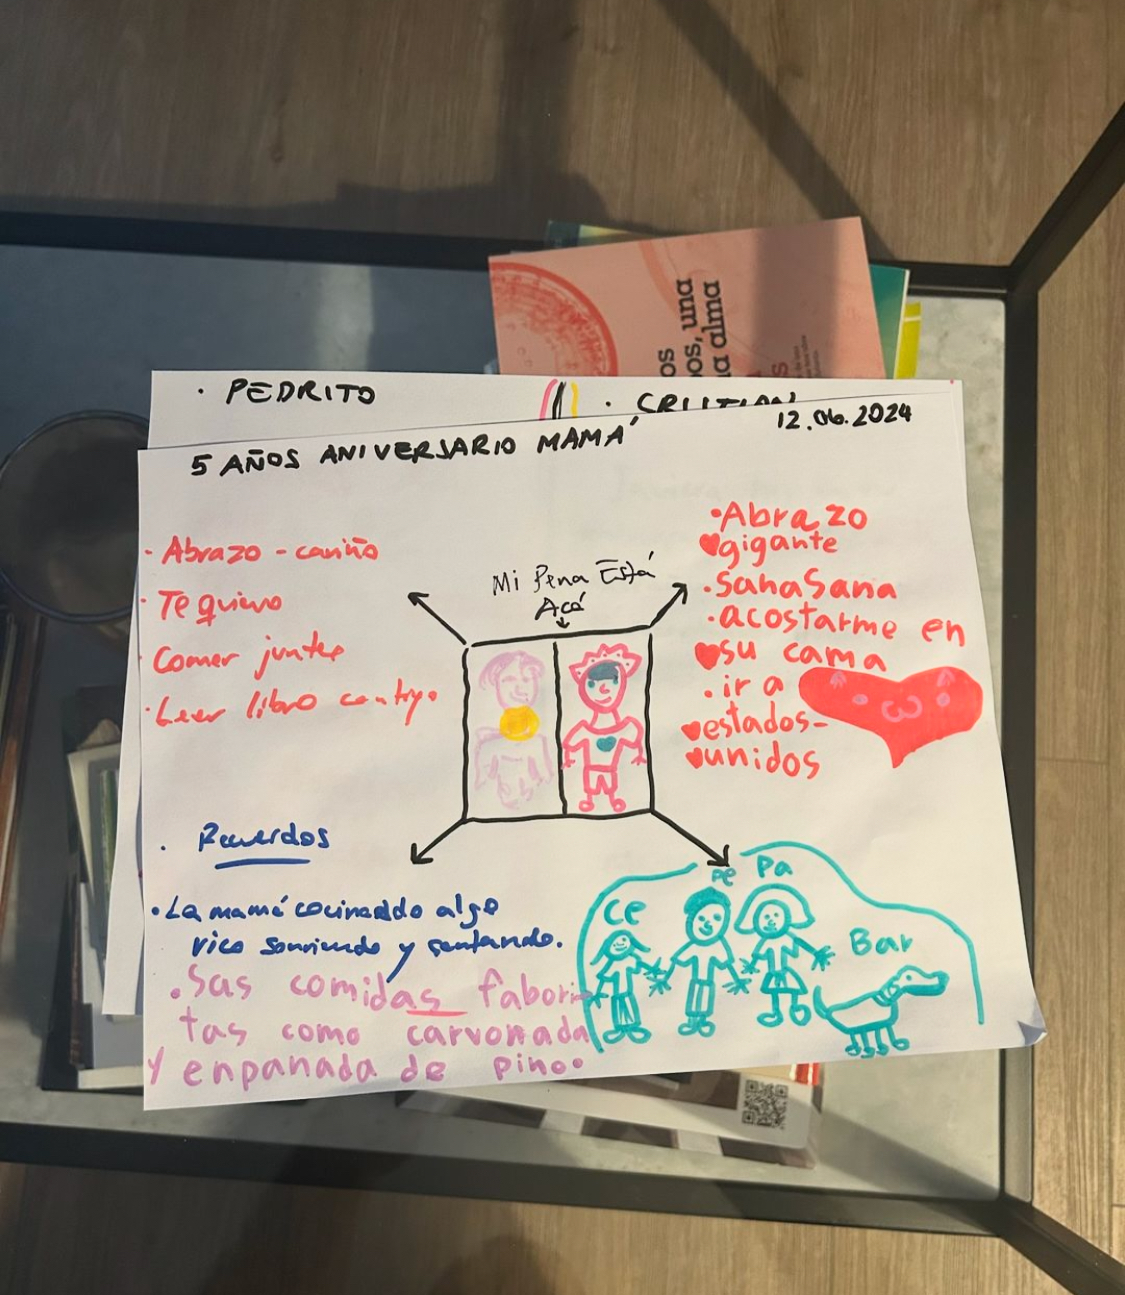 os
os, una
a alma
s
· PEDRITO
· CRISTIAN
12.06.2024
5 AÑOS ANIVERSARIO MAMÁ
· Abrazo - cariño
· Te quiero
Comer juntos
· Leer libro contigo.
Mi Pena Está
Acá
· Abrazo
gigante
· SanaSana
· acostarme en
su cama
· ir a
estados-
unidos
· Recuerdos
· La mamá cocinando algo
rico sonriendo y cantando.
· Sas comidas fabori
tas como carvonada
y enpanada de pino.
Ce
pe
Pa
Bar